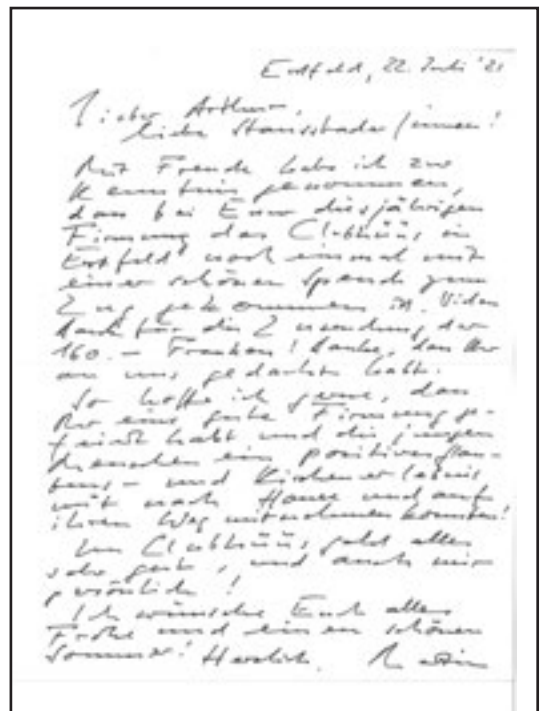 Erstfeld, 22. Juli '21
Lieber Arthur,
liebe Stansstader/innen!
Mit Freude habe ich zur
Kenntnis genommen,
dass bei Eurer diesjährigen
Firmung das Clubhüüs in
Erstfeld noch einmal mit
einer schönen Spende zum
Zug gekommen ist. Vielen
Dank für die Zuwendung der
160.- Franken! Danke, dass Ihr
an uns gedacht habt.
So hoffe ich gerne, dass
Ihr eine gute Firmung ge-
feiert habt und die jungen
Menschen ein positives Glau-
bens- und Kirchenerlebnis
mit nach Hause und auf
ihren Weg mitnehmen konnten!
Im Clubhüüs geht alles
sehr gut, und auch mir
persönlich!
Ich wünsche Euch alles
Frohe und einen schönen
Sommer! Herzlich.